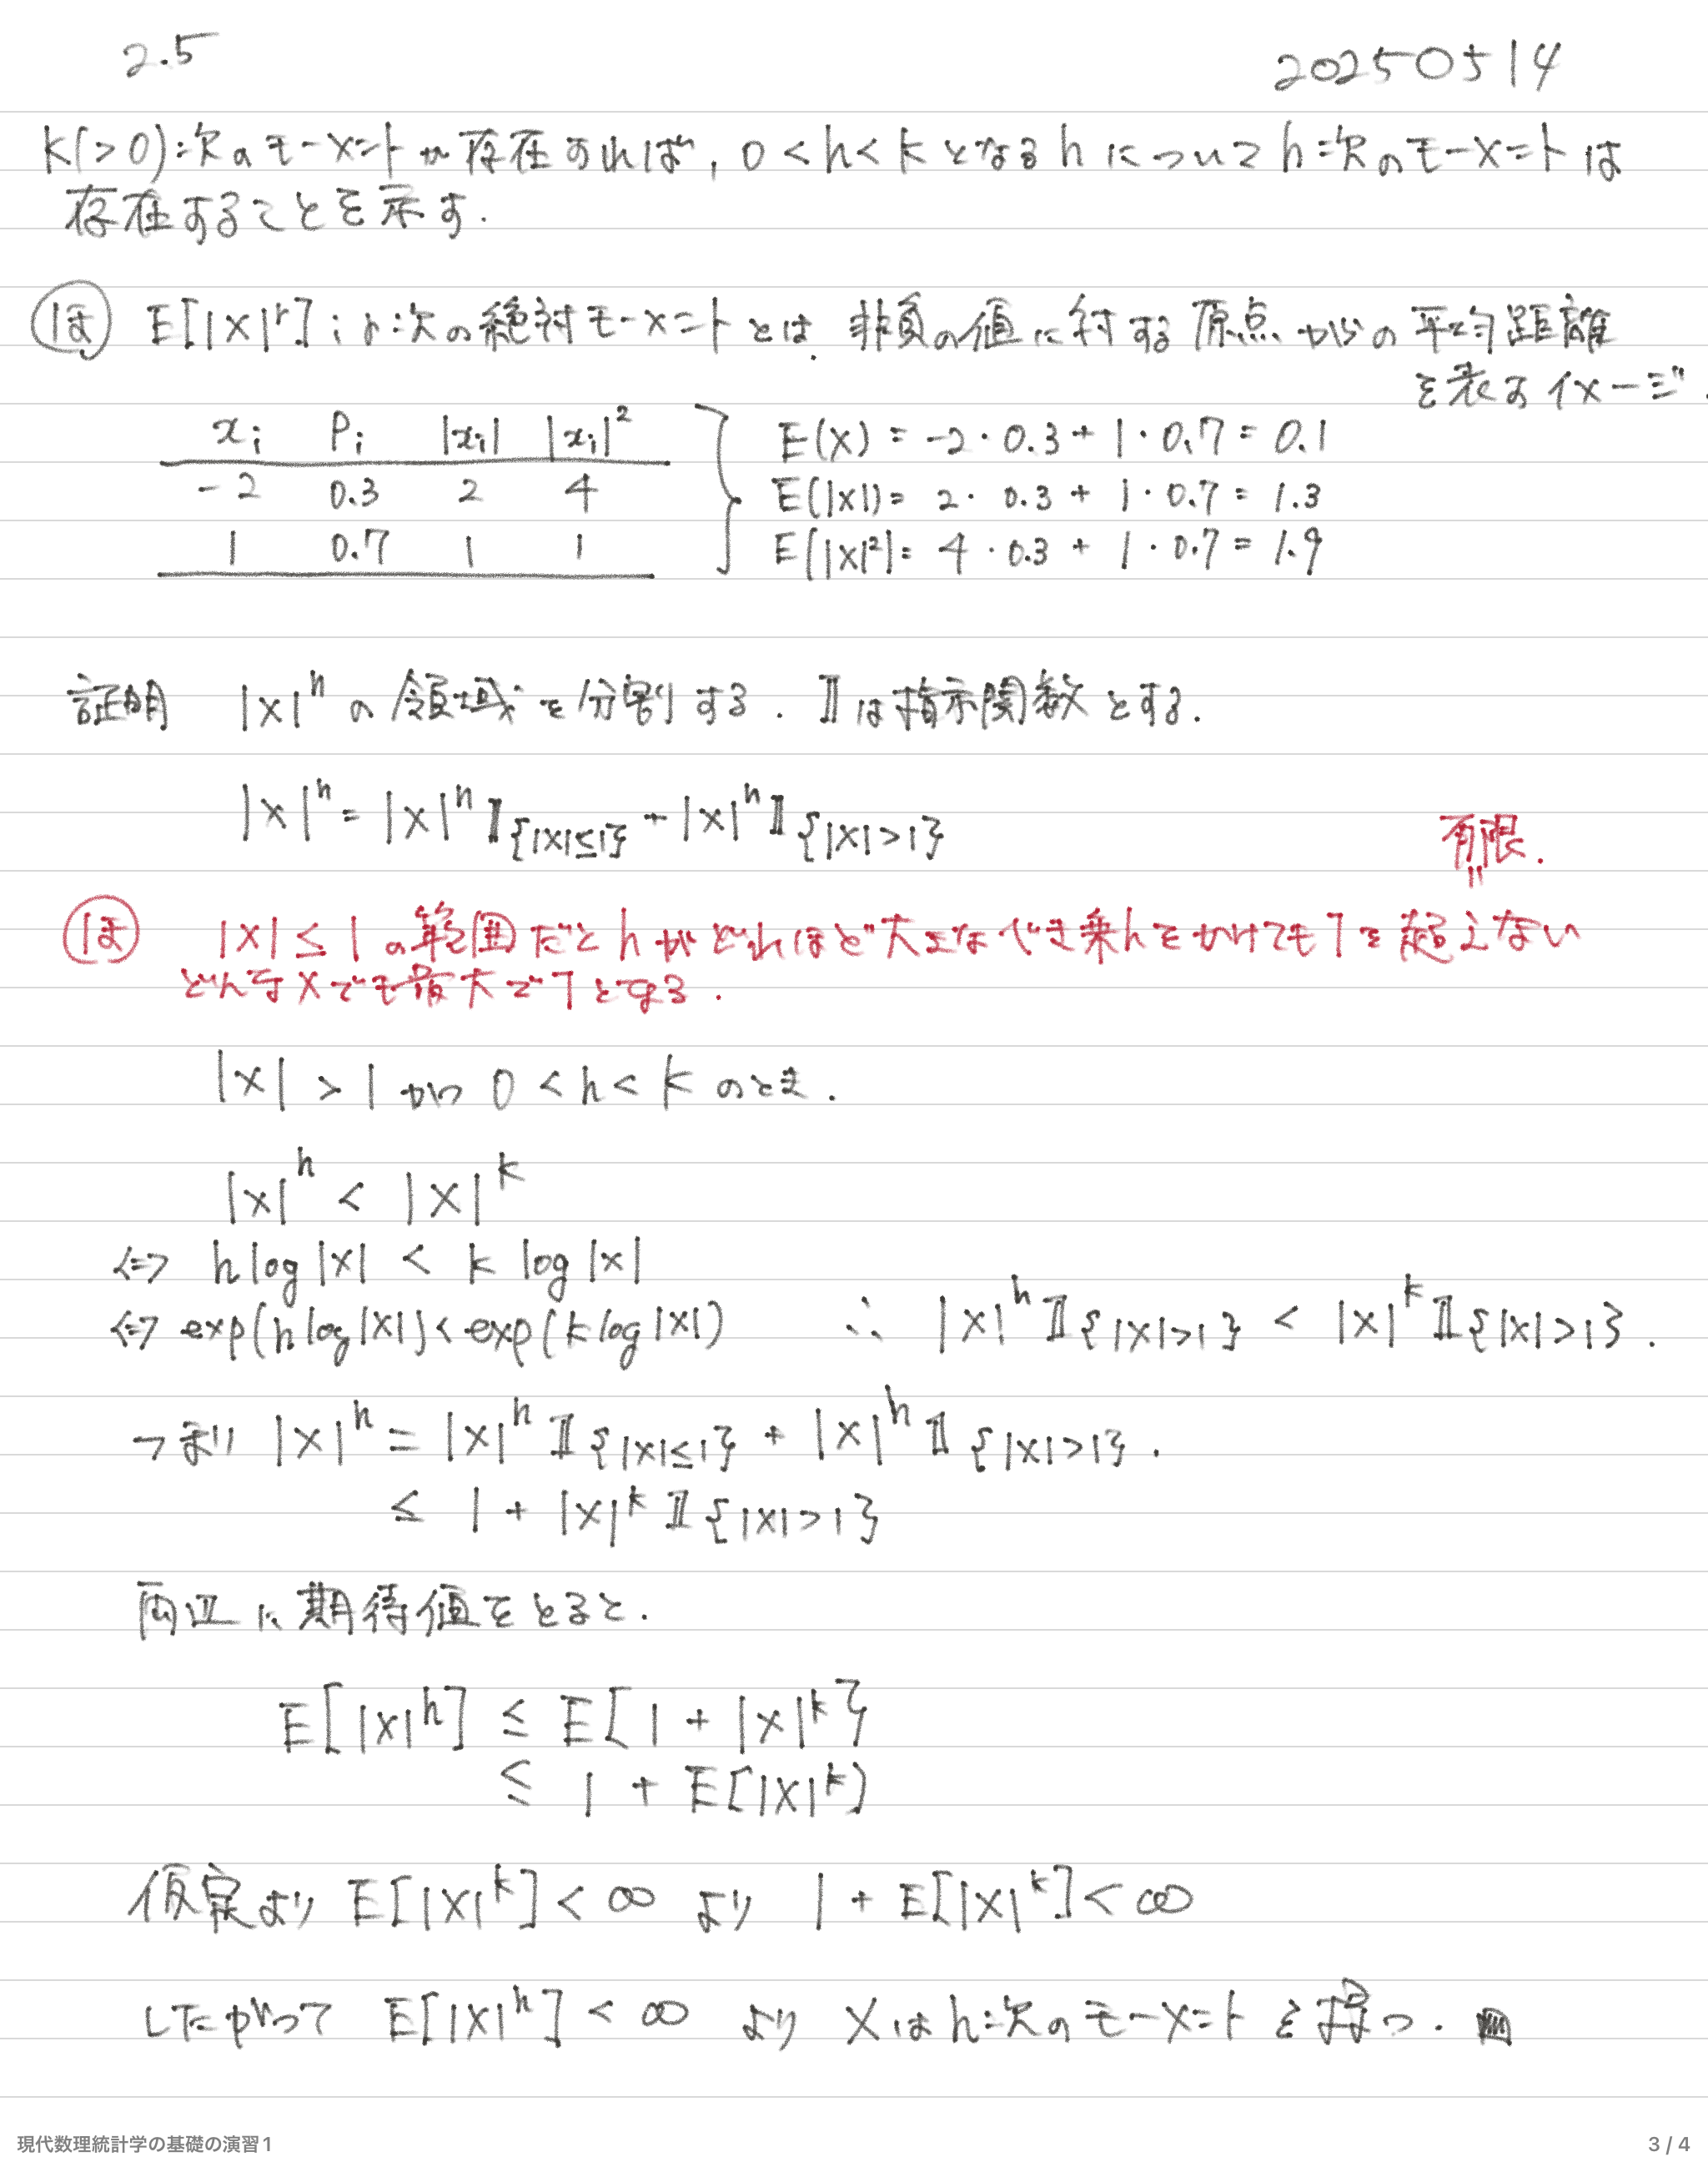 2.5
20250514
k(>0)次のモーメントが存在すれば, 0 < h < k となる h について h次のモーメントは
存在することを示す.
ほ E[|X|^r] ; r次の絶対モーメントとは. 非負の値に対する原点からの平均距離
を表すイメージ.
x_i P_i |x_i| |x_i|^2
-2 0.3 2 4
1 0.7 1 1
E(X) = -2・0.3 + 1・0.7 = 0.1
E(|X|) = 2・0.3 + 1・0.7 = 1.3
E[|X|^2] = 4・0.3 + 1・0.7 = 1.9
証明 |X|^h の領域を分割する. 𝟙は指示関数とする.
|X|^h = |X|^h 𝟙_{|X|≤1} + |X|^h 𝟙_{|X|>1}
有限.
〃
ほ |X| ≤ 1 の範囲だと h がどれほど大きなべき乗hをかけても1を超えない
どんなXでも最大で1となる.
|X| > 1 かつ 0 < h < k のとき.
|X|^h < |X|^k
⇔ h log|X| < k log|X|
⇔ exp(h log|X|) < exp(k log|X|) ∴ |X|^h 𝟙{|X|>1} < |X|^k 𝟙{|X|>1}.
つまり |X|^h = |X|^h 𝟙{|X|≤1} + |X|^h 𝟙{|X|>1}.
≤ 1 + |X|^k 𝟙{|X|>1}
両辺に期待値をとると.
E[|X|^h] ≤ E[1 + |X|^k]
≤ 1 + E[|X|^k]
仮定より E[|X|^k] < ∞ より 1 + E[|X|^k] < ∞
したがって E[|X|^h] < ∞ より X は h次のモーメントを持つ.
現代数理統計学の基礎の演習1
3 / 4